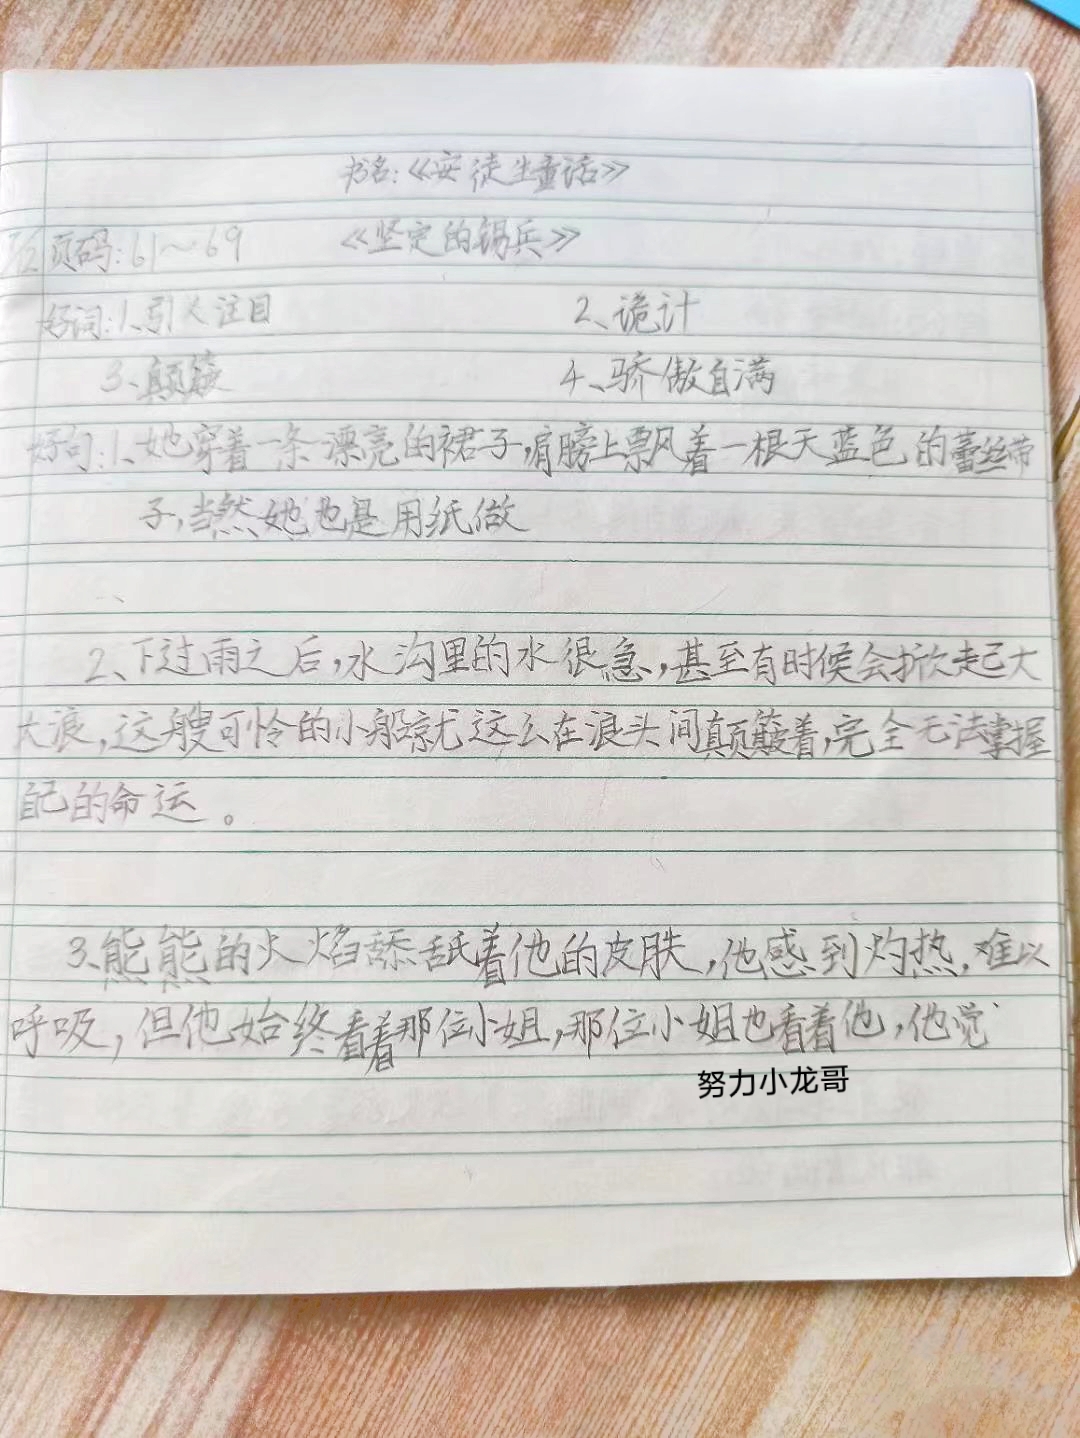 书名:《安徒生童话》
页码:61～69 《坚定的锡兵》
好词:1、引人注目 2、诡计
3、颠簸 4、骄傲自满
好句:1、她穿着一条漂亮的裙子,肩膀上飘着一根天蓝色的蕾丝带
子,当然她也是用纸做
2、下过雨之后,水沟里的水很急,甚至有时候会掀起大
大浪,这艘可怜的小船就这么在浪头间颠簸着,完全无法掌握
自己的命运。
3、熊熊的火焰舔舐着他的皮肤,他感到灼热,难以
呼吸,但他始终看着那位小姐,那位小姐也看着他,他觉
努力小龙哥